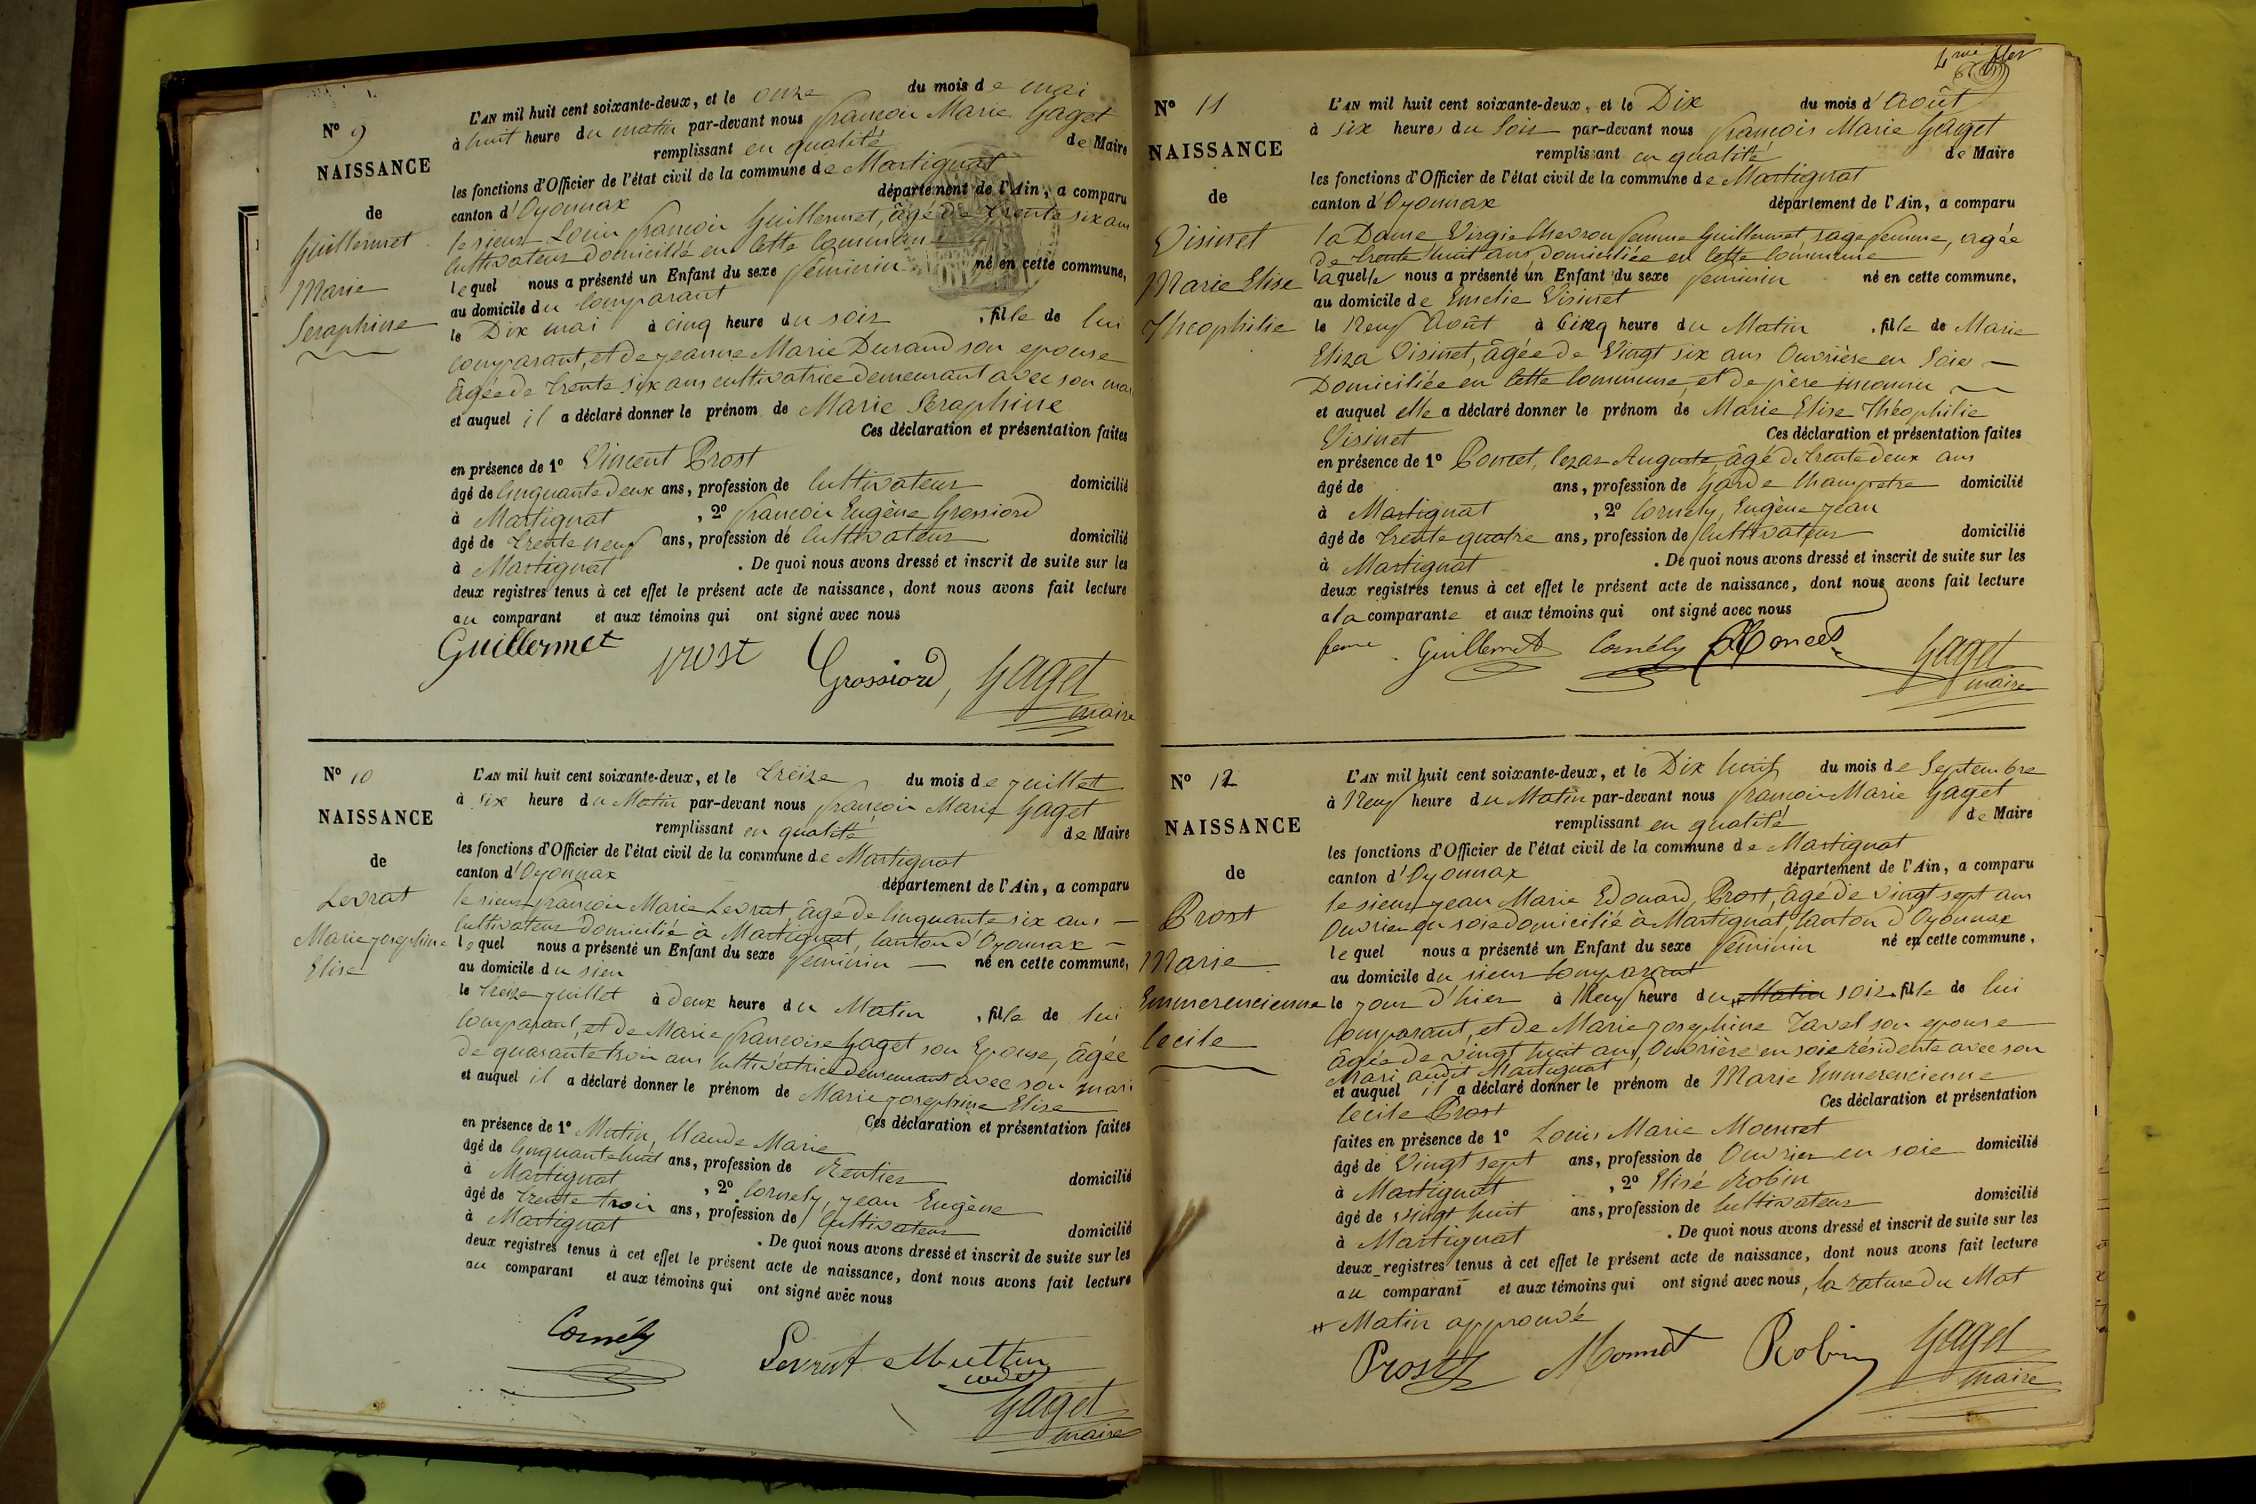 N° 9
NAISSANCE
de
Guillermet
Marie
Seraphine
L'AN mil huit cent soixante-deux, et le onze du mois de mai
à huit heure du matin par-devant nous françois Marie Gaget
remplissant en qualité de Maire
les fonctions d'Officier de l'état civil de la commune de Martignat
canton d'Oyonnax département de l'Ain, a comparu
le sieur Louis françois Guillermet, âgé de trente six ans
Cultivateur domicilié en cette Commune
lequel nous a présenté un Enfant du sexe féminin né en cette commune,
au domicile du comparant
le Dix mai à cinq heure du soir, fille de lui
comparant, et de jeanne Marie Durand son epouse
âgée de trente six ans cultivatrice demeurant avec son mari
et auquel il a déclaré donner le prénom de Marie Séraphine
Ces déclaration et présentation faites
en présence de 1° Vincent Prost
âgé de Cinquante deux ans, profession de Cultivateur domicilié
à Martignat, 2° françois Eugène Grossiord
âgé de trente neuf ans, profession de Cultivateur domicilié
à Martignat. De quoi nous avons dressé et inscrit de suite sur les
deux registres tenus à cet effet le présent acte de naissance, dont nous avons fait lecture
au comparant et aux témoins qui ont signé avec nous
Guillermet prost Grossiord, Gaget
maire
N° 10
NAISSANCE
de
Levrat
Marie josephine
Elise
L'AN mil huit cent soixante-deux, et le treize du mois de juillet
à six heure du Matin par-devant nous françois Marie Gaget
remplissant en qualité de Maire
les fonctions d'Officier de l'état civil de la commune de Martignat
canton d'Oyonnax département de l'Ain, a comparu
le sieur françois Marie Levrat, âgé de Cinquante six ans
Cultivateur domicilié à Martignat, Canton d'Oyonnax
lequel nous a présenté un Enfant du sexe féminin né en cette commune,
au domicile du sien
le treize juillet à deux heure du Matin, fille de lui
Comparant, et de Marie françoise Gaget son Epouse, âgée
de quarante trois ans Cultivatrice demeurant avec son mari
et auquel il a déclaré donner le prénom de Marie josephine Elise
Ces déclaration et présentation faites
en présence de 1° Mutin, Claude Marie
âgé de Cinquante huit ans, profession de Rentier domicilié
à Martignat, 2° Cornély, jean Eugène
âgé de trente trois ans, profession de Cultivateur domicilié
à Martignat. De quoi nous avons dressé et inscrit de suite sur les
deux registres tenus à cet effet le présent acte de naissance, dont nous avons fait lecture
au comparant et aux témoins qui ont signé avec nous
Cornély Levrat Muttin
cadet
Gaget
maire
N° 11
NAISSANCE
de
Visinet
Marie Elise
Théophilie
L'AN mil huit cent soixante-deux, et le Dix du mois d'Août
à six heures du Soir par-devant nous françois Marie Gaget
remplissant en qualité de Maire
les fonctions d'Officier de l'état civil de la commune de Martignat
canton d'Oyonnax département de l'Ain, a comparu
la Dame Virgie Chevron femme Guillermet sage femme, agée
de trente huit ans, domiciliée en cette commune
laquelle nous a présenté un Enfant du sexe féminin né en cette commune,
au domicile de Emelie Visinet
le Neuf Août à Cinq heure du Matin, fille de Marie
Eliza Visinet, âgée de Vingt six ans Ouvrière en Soie
Domiciliée en Cette Commune, et de père inconnu
et auquel elle a déclaré donner le prénom de Marie Elise Théophilie
Visinet Ces déclaration et présentation faites
en présence de 1° Poncet, Cezar Auguste, âgé de trente deux ans
âgé de ans, profession de Garde Champetre domicilié
à Martignat, 2° Cornély, Eugène jean
âgé de trente quatre ans, profession de Cultivateur domicilié
à Martignat. De quoi nous avons dressé et inscrit de suite sur les
deux registres tenus à cet effet le présent acte de naissance, dont nous avons fait lecture
a la comparante et aux témoins qui ont signé avec nous
femme Guillermet Cornély Poncet Gaget
maire
N° 12
NAISSANCE
de
Prost
Marie
Emmerencienne
Cecile
L'AN mil huit cent soixante-deux, et le Dix huit du mois de Septembre
à Neuf heure du Matin par-devant nous françois Marie Gaget
remplissant en qualité de Maire
les fonctions d'Officier de l'état civil de la commune de Martignat
canton d'Oyonnax département de l'Ain, a comparu
le sieur jean Marie Edouard Prost, âgé de vingt sept ans
Ouvrier en soie domicilié à Martignat, Canton d'Oyonnax
lequel nous a présenté un Enfant du sexe féminin né en cette commune,
au domicile du sieur Comparant
le jour d'hier à Neuf heure du Matin soir, fille de lui
Comparant, et de Marie josephine Tavel son epouse
âgée de vingt huit ans, Ouvrière en soie résidente avec son
Mari audit Martignat
et auquel il a déclaré donner le prénom de Marie Emmerencienne
Cecile Prost Ces déclaration et présentation
faites en présence de 1° Louis Marie Monnet
âgé de Vingt sept ans, profession de Ouvrier en soie domicilié
à Martignat, 2° Elisé Robin
âgé de vingt huit ans, profession de Cultivateur domicilié
à Martignat. De quoi nous avons dressé et inscrit de suite sur les
deux registres tenus à cet effet le présent acte de naissance, dont nous avons fait lecture
au comparant et aux témoins qui ont signé avec nous, la rature du Mot
Matin approuvé
Prost Monnet Robin Gaget
maire